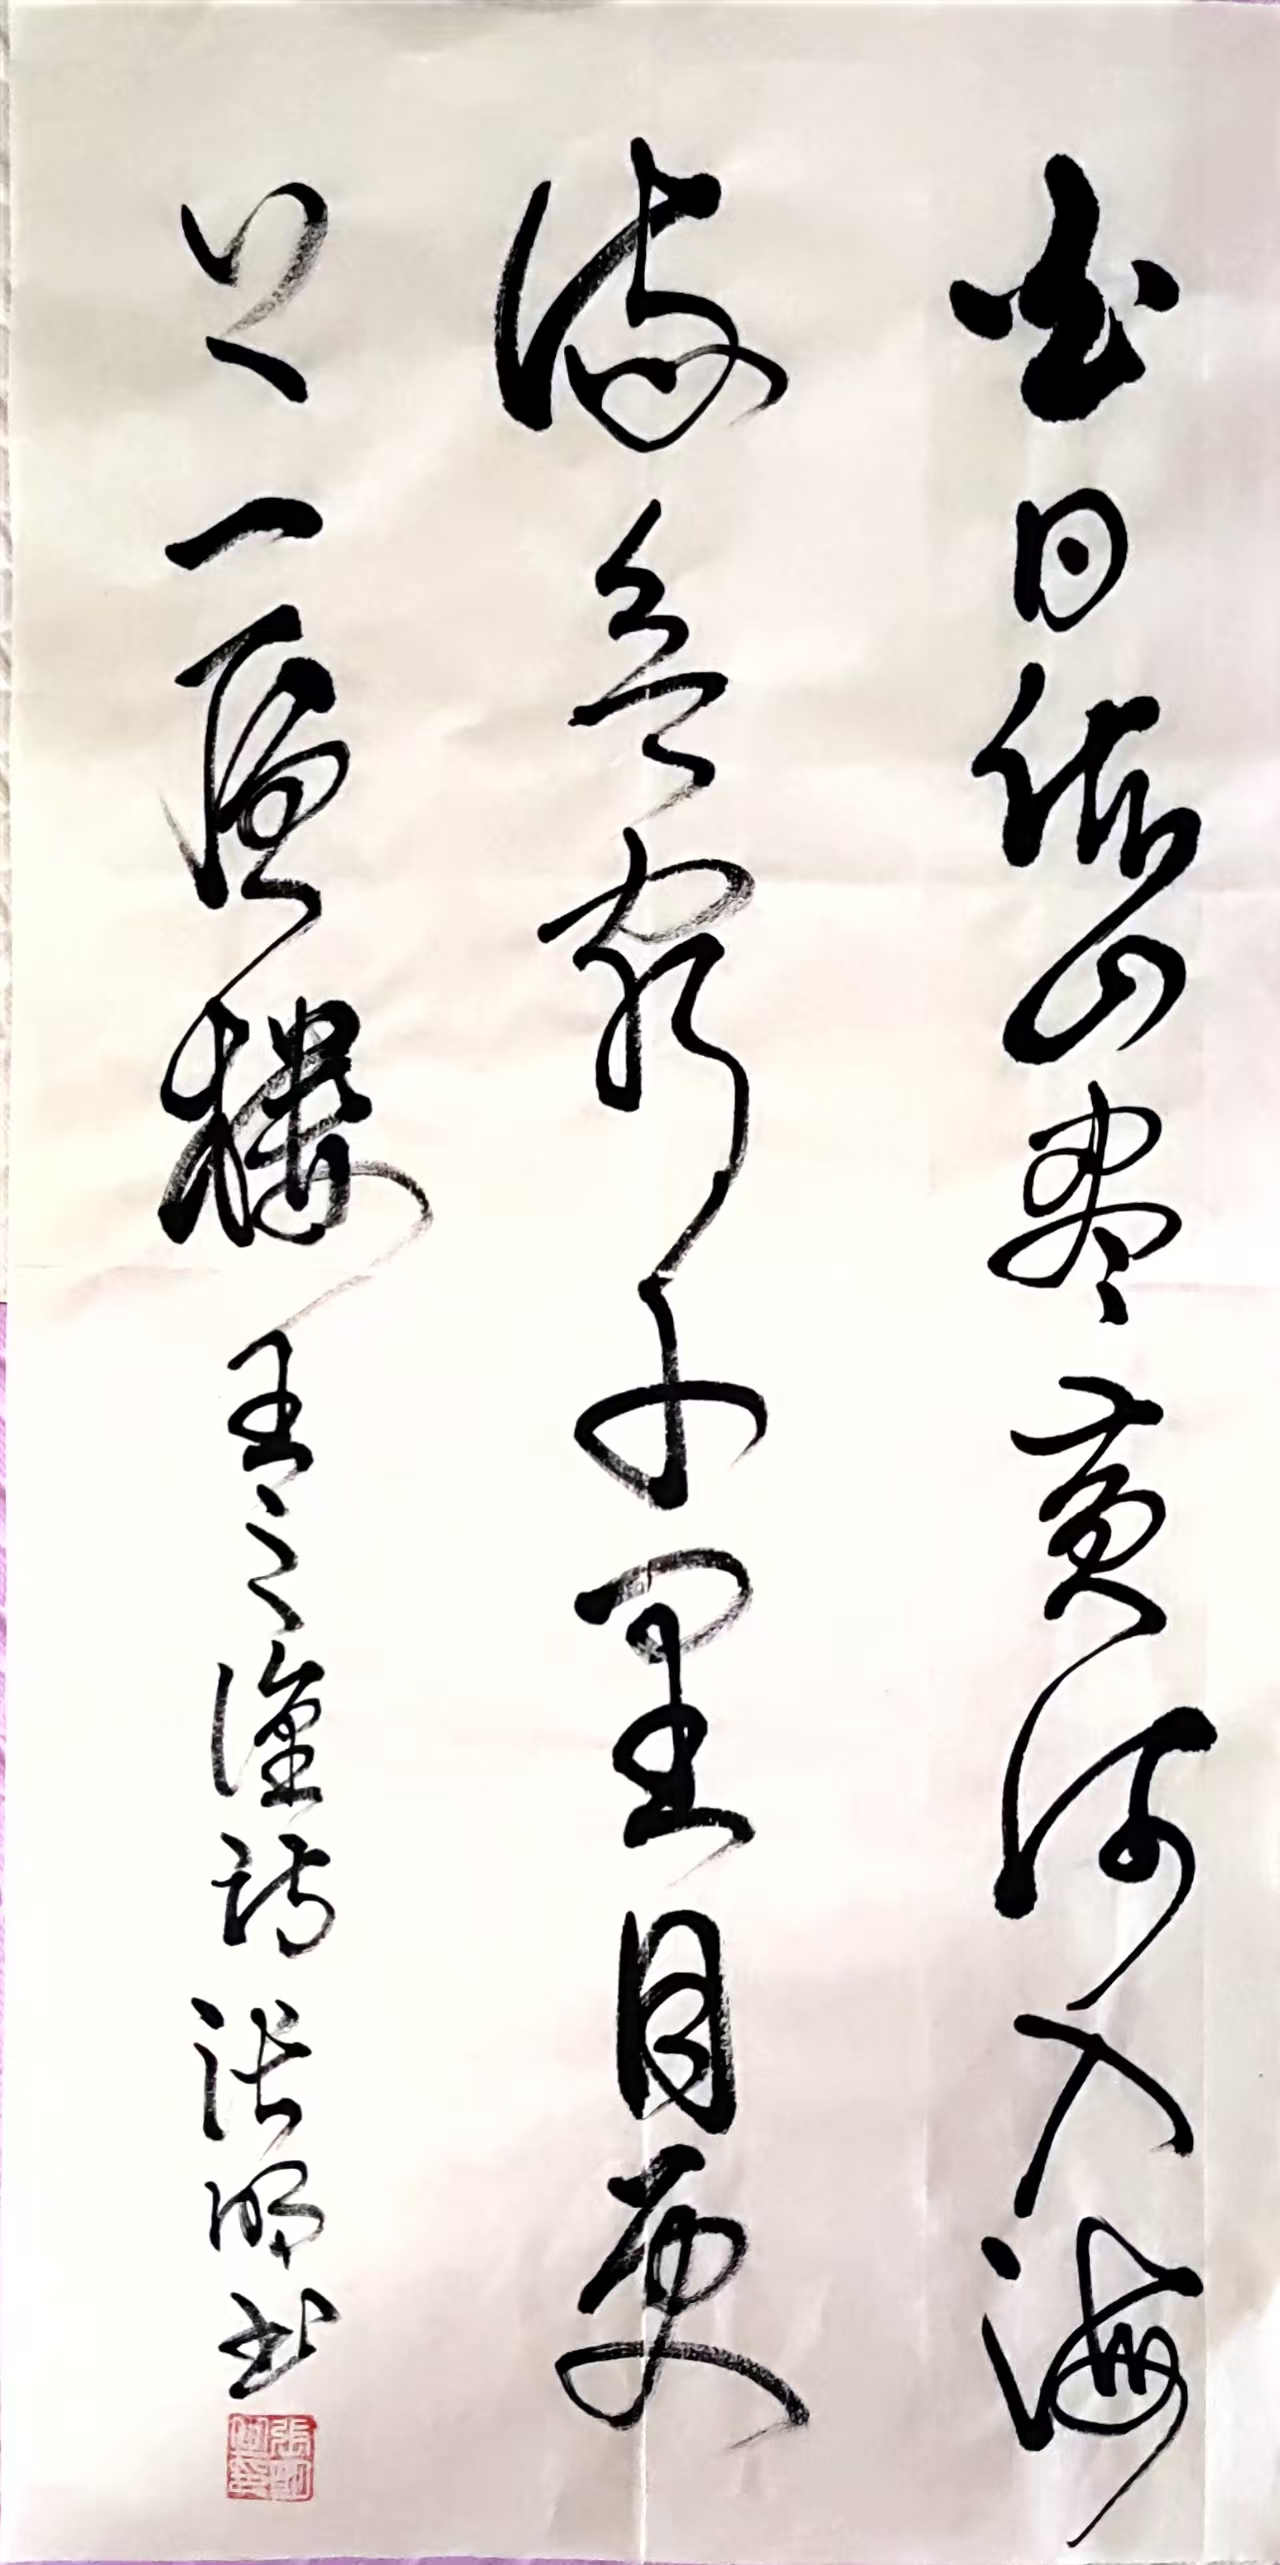 白日依山尽黄河入海
流欲穷千里目更
上一层楼 王之涣诗 张明书